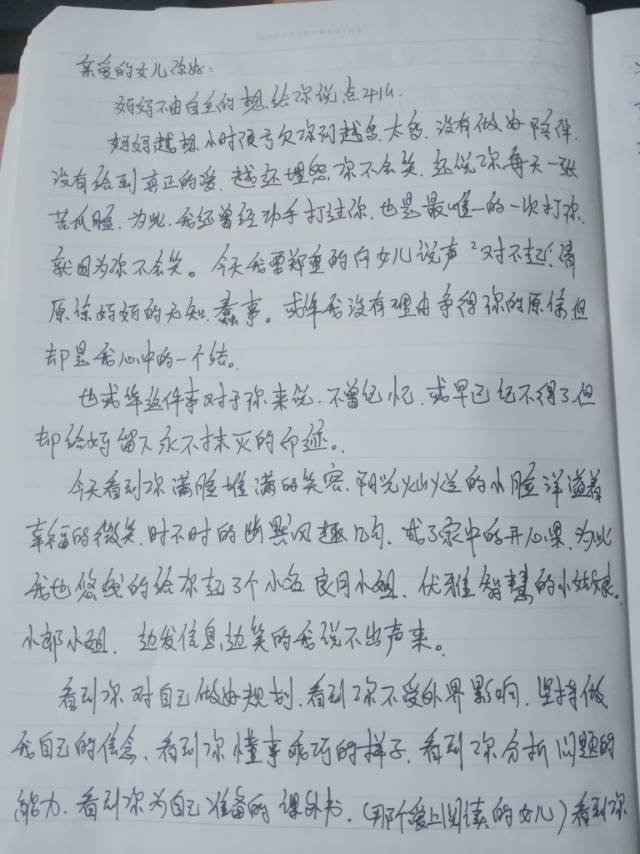 亲爱的女儿你好：
妈妈不由自主的想给你说点什么.
妈妈越想小时候亏欠你的越多.太多.没有做好陪伴.
没有给到真正的爱.越还埋怨你不会笑.还说你每天一张
苦瓜脸.为此.我还曾经动手打过你.也是最唯一的一次打你.
就因为你不会笑。今天我要郑重的向女儿说声“对不起！请
原谅妈妈的无知.蠢事。或许我没有理由争得你的原谅.但
却是我心中的一个结。
也或许这件事对于你来说.不曾记忆.或早已记不得了.但
却给妈留下永不抹灭的印迹。
今天看到你满脸堆满的笑容.阳光灿烂的小脸洋溢着
幸福的微笑.时不时的幽默风趣几句.成了家中的开心果.为此
我也悠哉的给你起了个小名良月小姐.优雅智慧的小姑娘。
小郎小姐.边发信息.边笑的我说不出声来。
看到你对自己做好规划.看到你不受外界影响.坚持做
我自己的信念.看到你懂事乖巧的样子.看到你分析问题的
能力.看到你为自己准备的课外书.(那个爱上阅读的女儿)看到你